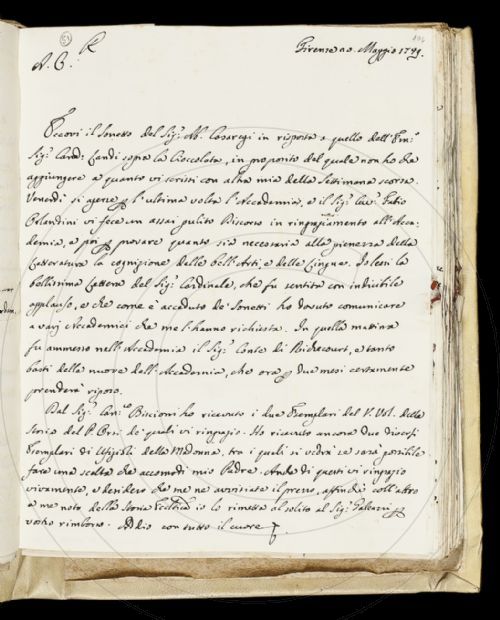 A. C. R.
Firenze 20. Maggio 1749.
Eccovi il Sonetto del Sig.r Ab. Casaregi in risposta a quello dell'Em.o
Sig.r Card. Landi sopra la Cioccolata, in proposito del quale non ho che
aggiungere a quanto vi scrissi con altra mia della Settimana scorsa.
Venerdì si aperse p l'ultima volta l'Accademia, e il Sig.r Cav. Fabio
Orlandini vi fece un assai pulito Discorso in ringraziamento all'Acca-
demia, e poi p provare quanto sia necessaria alla pienezza della
Letteratura la cognizione delle bell'Arti, e delle Lingue. Io lessi la
bellissima Lettera del Sig.r Cardinale, che fu sentita con indicibile
applauso, e che come è accaduto de' Sonetti ho dovuto comunicare
a varj Accademici che me l'hanno richiesta. In quella mattina
fu ammesso nell'Accademia il Sig.r Conte di Richecourt, e tanto
basti delle nuove dell'Accademia, che ora p due mesi certamente
prenderà riposo.
Dal Sig.r Can.co Biscioni ho ricevuto i due Esemplari del V. Vol. della
Storia del P. Orsi de' quali vi ringrazio. Ho ricevuto ancora due diversi
Esemplari di Ufizioli della Madonna, tra i quali si vedrà se sarà possibile
fare una scelta che accomodi mio Padre. Anche di questi vi ringrazio
vivamente, e desidero che me ne avvisiate il prezzo, affinchè coll'altro
a me noto della Storia Eccl.ca io lo rimetta al solito al Sig.r p
vostro rimborso. Addio con tutto il cuore